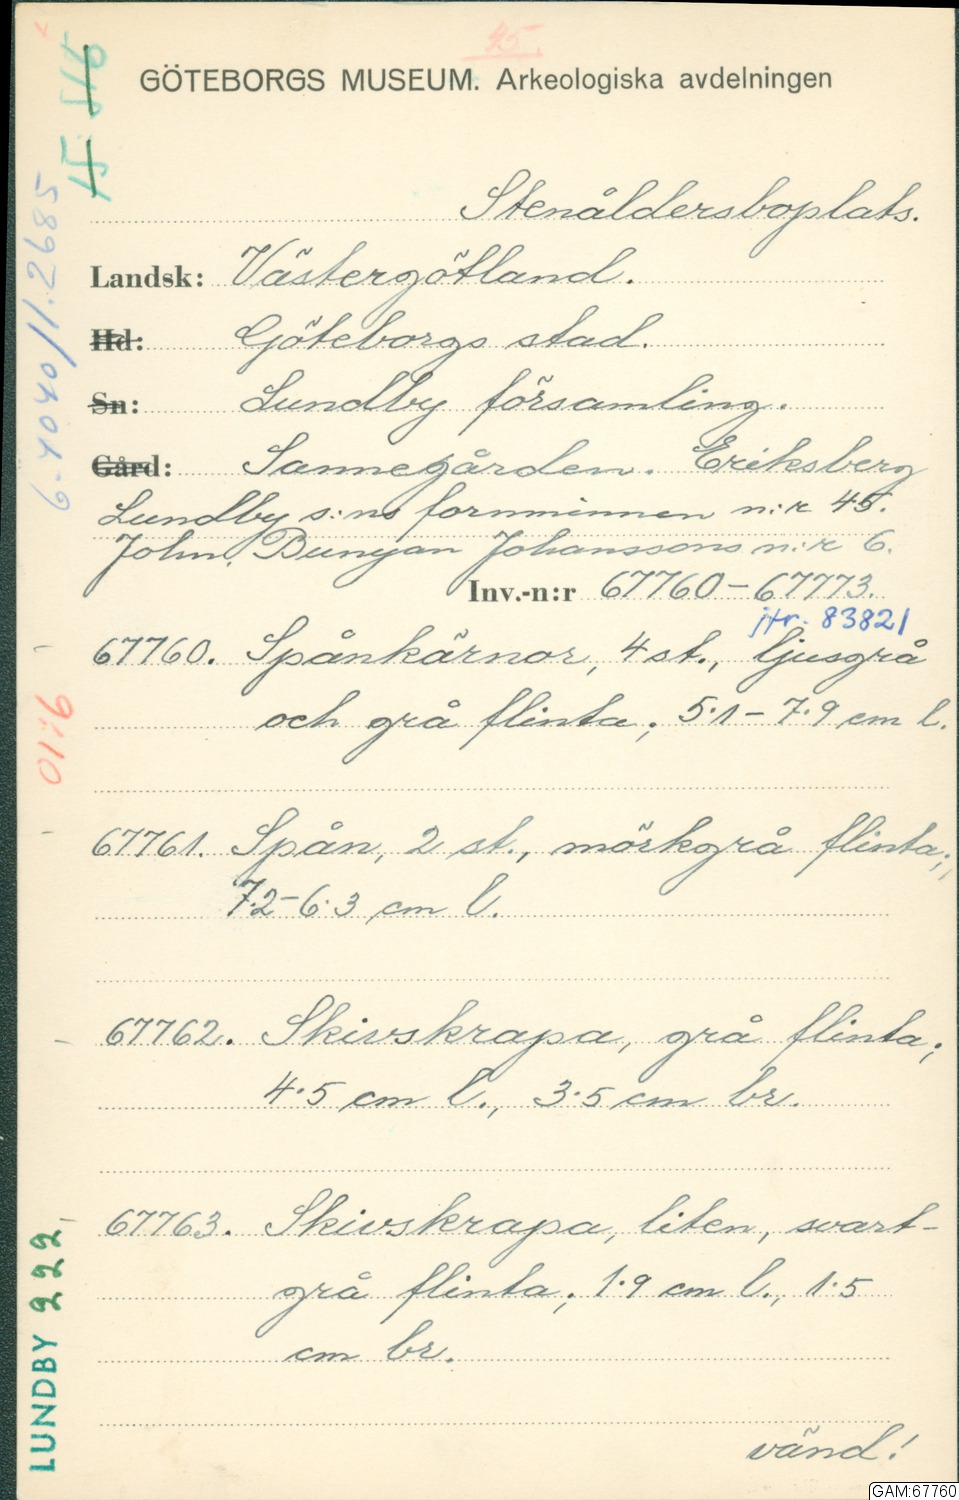 45.
GÖTEBORGS MUSEUM. Arkeologiska avdelningen
Stenåldersboplats.
Landsk: Västergötland.
Hd: Göteborgs stad.
Sn: Lundby församling.
Gård: Sannegården. Eriksberg
Lundby s:ns fornminnen n:r 45.
John Bunyan Johanssons n:r 6.
Inv.-n:r 67760-67773.
jfr. 83821
67760. Spånkärnor, 4 st., ljusgrå
och grå flinta; 5.1-7.9 cm l.
67761. Spån, 2 st., mörkgrå flinta;
7.2-6.3 cm l.
67762. Skivskrapa, grå flinta;
4.5 cm l., 3.5 cm br.
67763. Skivskrapa, liten, svart-
grå flinta; 1.9 cm l., 1.5
cm br.
vänd!
LUNDBY 222
GAM:67760